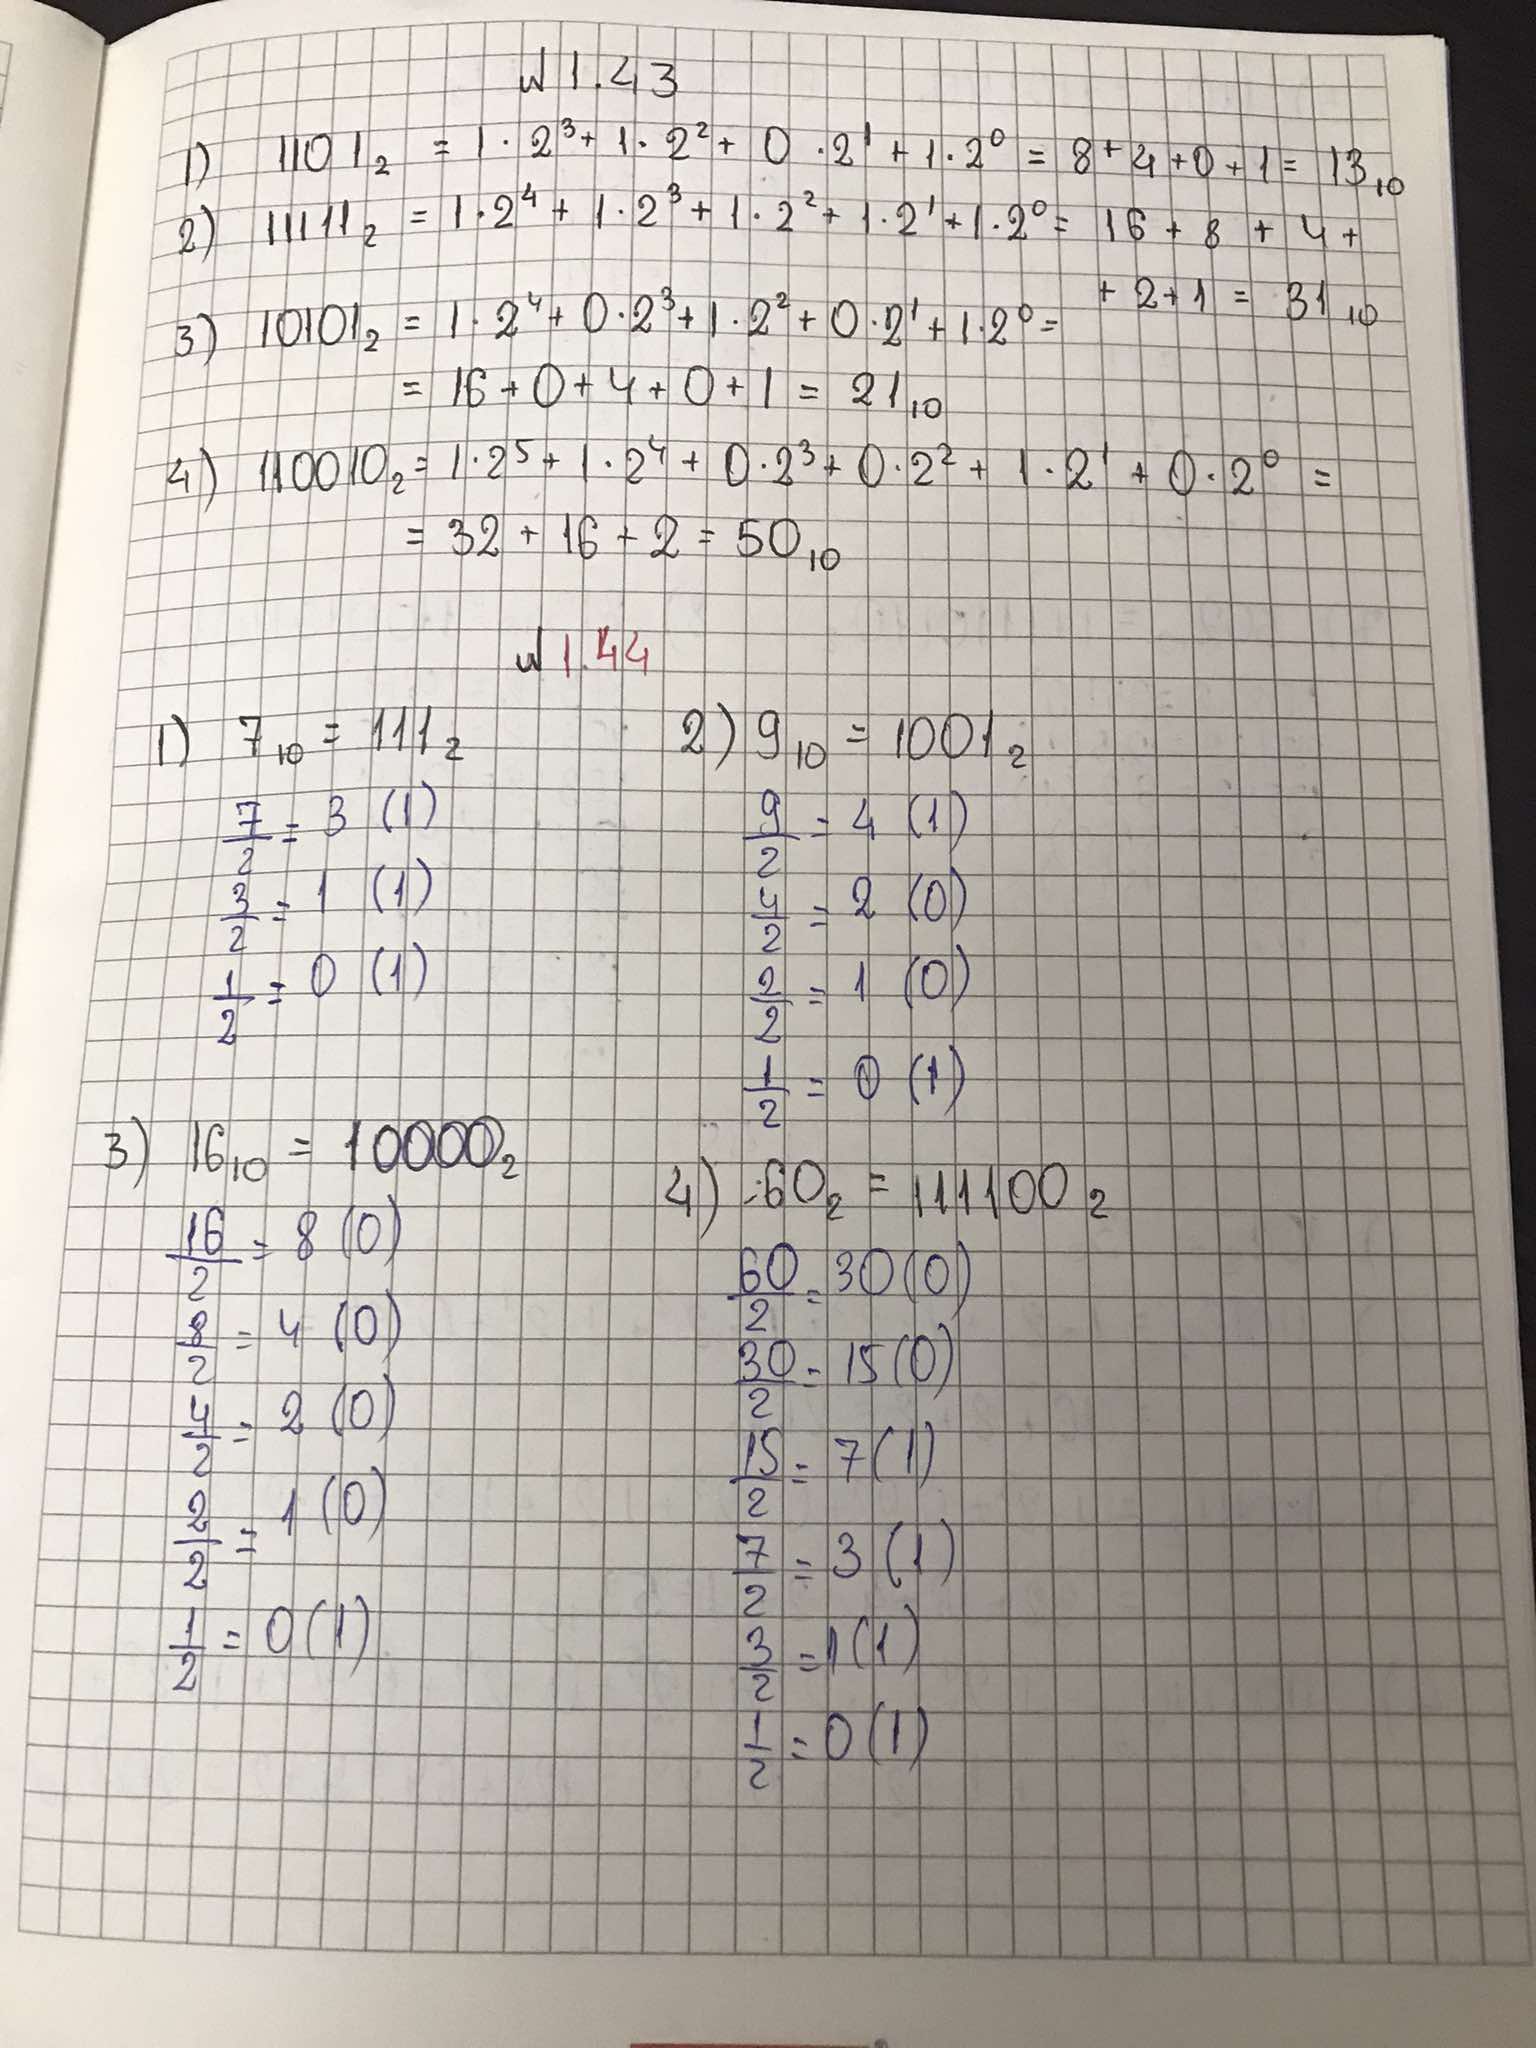 № 1.43
1) 1101₂ = 1·2³ + 1·2² + 0·2¹ + 1·2⁰ = 8 + 4 + 0 + 1 = 13₁₀
2) 11111₂ = 1·2⁴ + 1·2³ + 1·2² + 1·2¹ + 1·2⁰ = 16 + 8 + 4 +
+ 2 + 1 = 31₁₀
3) 10101₂ = 1·2⁴ + 0·2³ + 1·2² + 0·2¹ + 1·2⁰ =
= 16 + 0 + 4 + 0 + 1 = 21₁₀
4) 110010₂ = 1·2⁵ + 1·2⁴ + 0·2³ + 0·2² + 1·2¹ + 0·2⁰ =
= 32 + 16 + 2 = 50₁₀
№ 1.44
1) 7₁₀ = 111₂
7/2 = 3 (1)
3/2 = 1 (1)
1/2 = 0 (1)
2) 9₁₀ = 1001₂
9/2 = 4 (1)
4/2 = 2 (0)
2/2 = 1 (0)
1/2 = 0 (1)
3) 16₁₀ = 10000₂
16/2 = 8 (0)
8/2 = 4 (0)
4/2 = 2 (0)
2/2 = 1 (0)
1/2 = 0 (1)
4) 60₂ = 111100₂
60/2 = 30 (0)
30/2 = 15 (0)
15/2 = 7 (1)
7/2 = 3 (1)
3/2 = 1 (1)
1/2 = 0 (1)